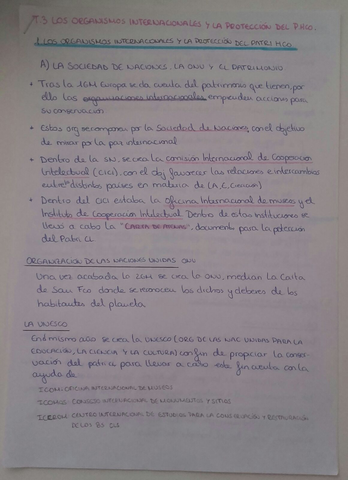 T.3 LOS ORGANISMOS INTERNACIONALES Y LA PROTECCIÓN DEL P.HCO.
1. LOS ORGANISMOS INTERNACIONALES Y LA PROTECCIÓN DEL PATRI HCO
A) LA SOCIEDAD DE NACIONES. LA ONU Y EL PATRIMONIO
Tras la 1GM Europa se da cuenta del patrimonio que tienen, por
ello las organizaciones internacionales emprenden acciones para
su conservación
Estas org se componen por la Sociedad de Naciones con el objetivo
de mirar por la paz internacional
Dentro de la SN, se crea la comisión Internacional de Cooperacion
Intelectual (CICI), con el obj favorecer las relaciones e intercambios
entre distintos países en materia de (A, C, Ciencia)
Dentro del estaba la oficina Internacional de museos y el
Instituto de Cooperacion Intelectual. Dentro de estas Instituciones se
llevó a cabo la "CARTA DE ATENAS", documento para la protección
del Patri CL
ORGANIZACIÓN DE LAS NACIONES UNIDAS ONU
Una vez acabada la 2GM se crea la ONU, median la Carta
de San Fco donde se reconocen los drchos y deberes de los
habitantes del planeta.
LA UNESCO
En mismo año se crea la UNESCO (ORG DE LAS NAC UNIDAS PARA LA
EDUCACION, LA CIENCIA Y LA CULTURA) con fin de propiciar la conser-
vación del patri para llevar a cabo este fin cuenta con la
ayuda de
ICOM: OFICINA INTERNACIONAL DE MUSEOS
ICOMOS: CONSEJO INTERNACIONAL DE MONUMENTOS Y SITIOS
ICCROM: CENTRO INTERNACIONAL DE ESTUDIOS PARA LA CONSERVACION Y RESTAURACIÓN
DE LOS BS CLS